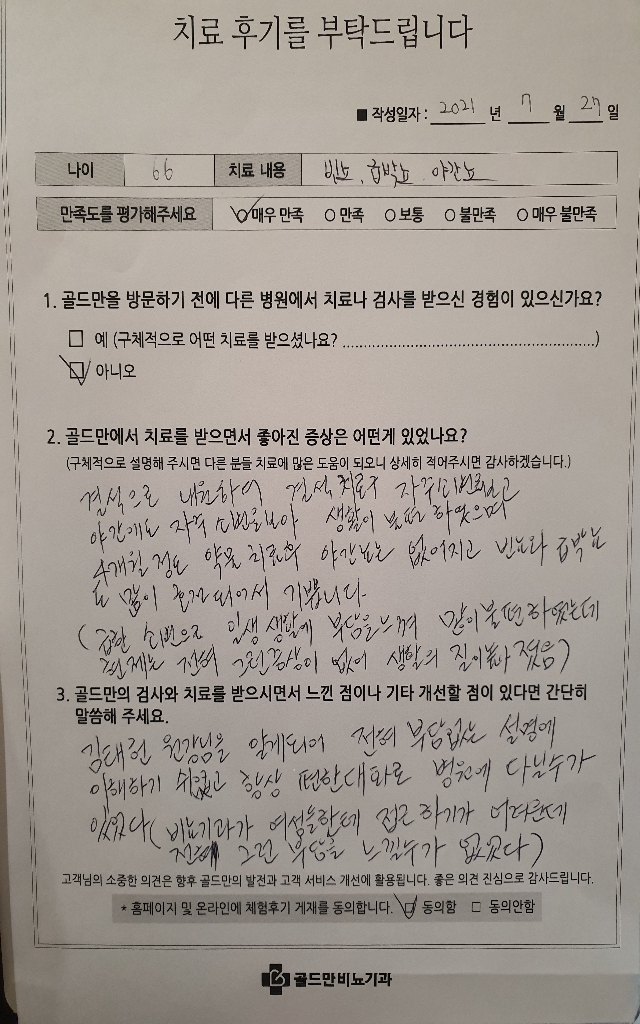 치료 후기를 부탁드립니다
■ 작성일자 : 2021 년 7 월 27 일
나이 66 치료 내용 빈뇨, 급박뇨, 야간뇨
만족도를 평가해주세요 매우 만족 ○ 만족 ○ 보통 ○ 불만족 ○ 매우 불만족
1. 골드만을 방문하기 전에 다른 병원에서 치료나 검사를 받으신 경험이 있으신가요?
□ 예 (구체적으로 어떤 치료를 받으셨나요? ............................................................)
아니오
2. 골드만에서 치료를 받으면서 좋아진 증상은 어떤게 있었나요?
(구체적으로 설명해 주시면 다른 분들 치료에 많은 도움이 되오니 상세히 적어주시면 감사하겠습니다.)
결석으로 내원하여 결석 치료후 자주 소변
야간에도 자주 소변을 보아 생활이 불편 하였으며
4개월 정도 약물 치료후 야간뇨는 없어지고 빈뇨와 급박뇨
도 많이 호전 되어서 기쁩니다.
(급한 소변으로 일생 생활에 부담을 느껴 많이 불편 하였는데
현재는 전혀 그런 증상이 없어 생활의 질이 높아 졌음)
3. 골드만의 검사와 치료를 받으시면서 느낀 점이나 기타 개선할 점이 있다면 간단히
말씀해 주세요.
김태헌 원장님을 알게되어 전혀 부담없는 설명에
이해하기 쉬웠고 항상 편한 대화로 병원에 다닐수가
있었다 (비뇨기과가 여성들한테 접근하기가 어려운데
전혀 그런 부담을 느낄수가 없었다)
고객님의 소중한 의견은 향후 골드만의 발전과 고객 서비스 개선에 활용됩니다. 좋은 의견 진심으로 감사드립니다.
* 홈페이지 및 온라인에 체험후기 게재를 동의합니다. 동의함 □ 동의안함
골드만비뇨기과